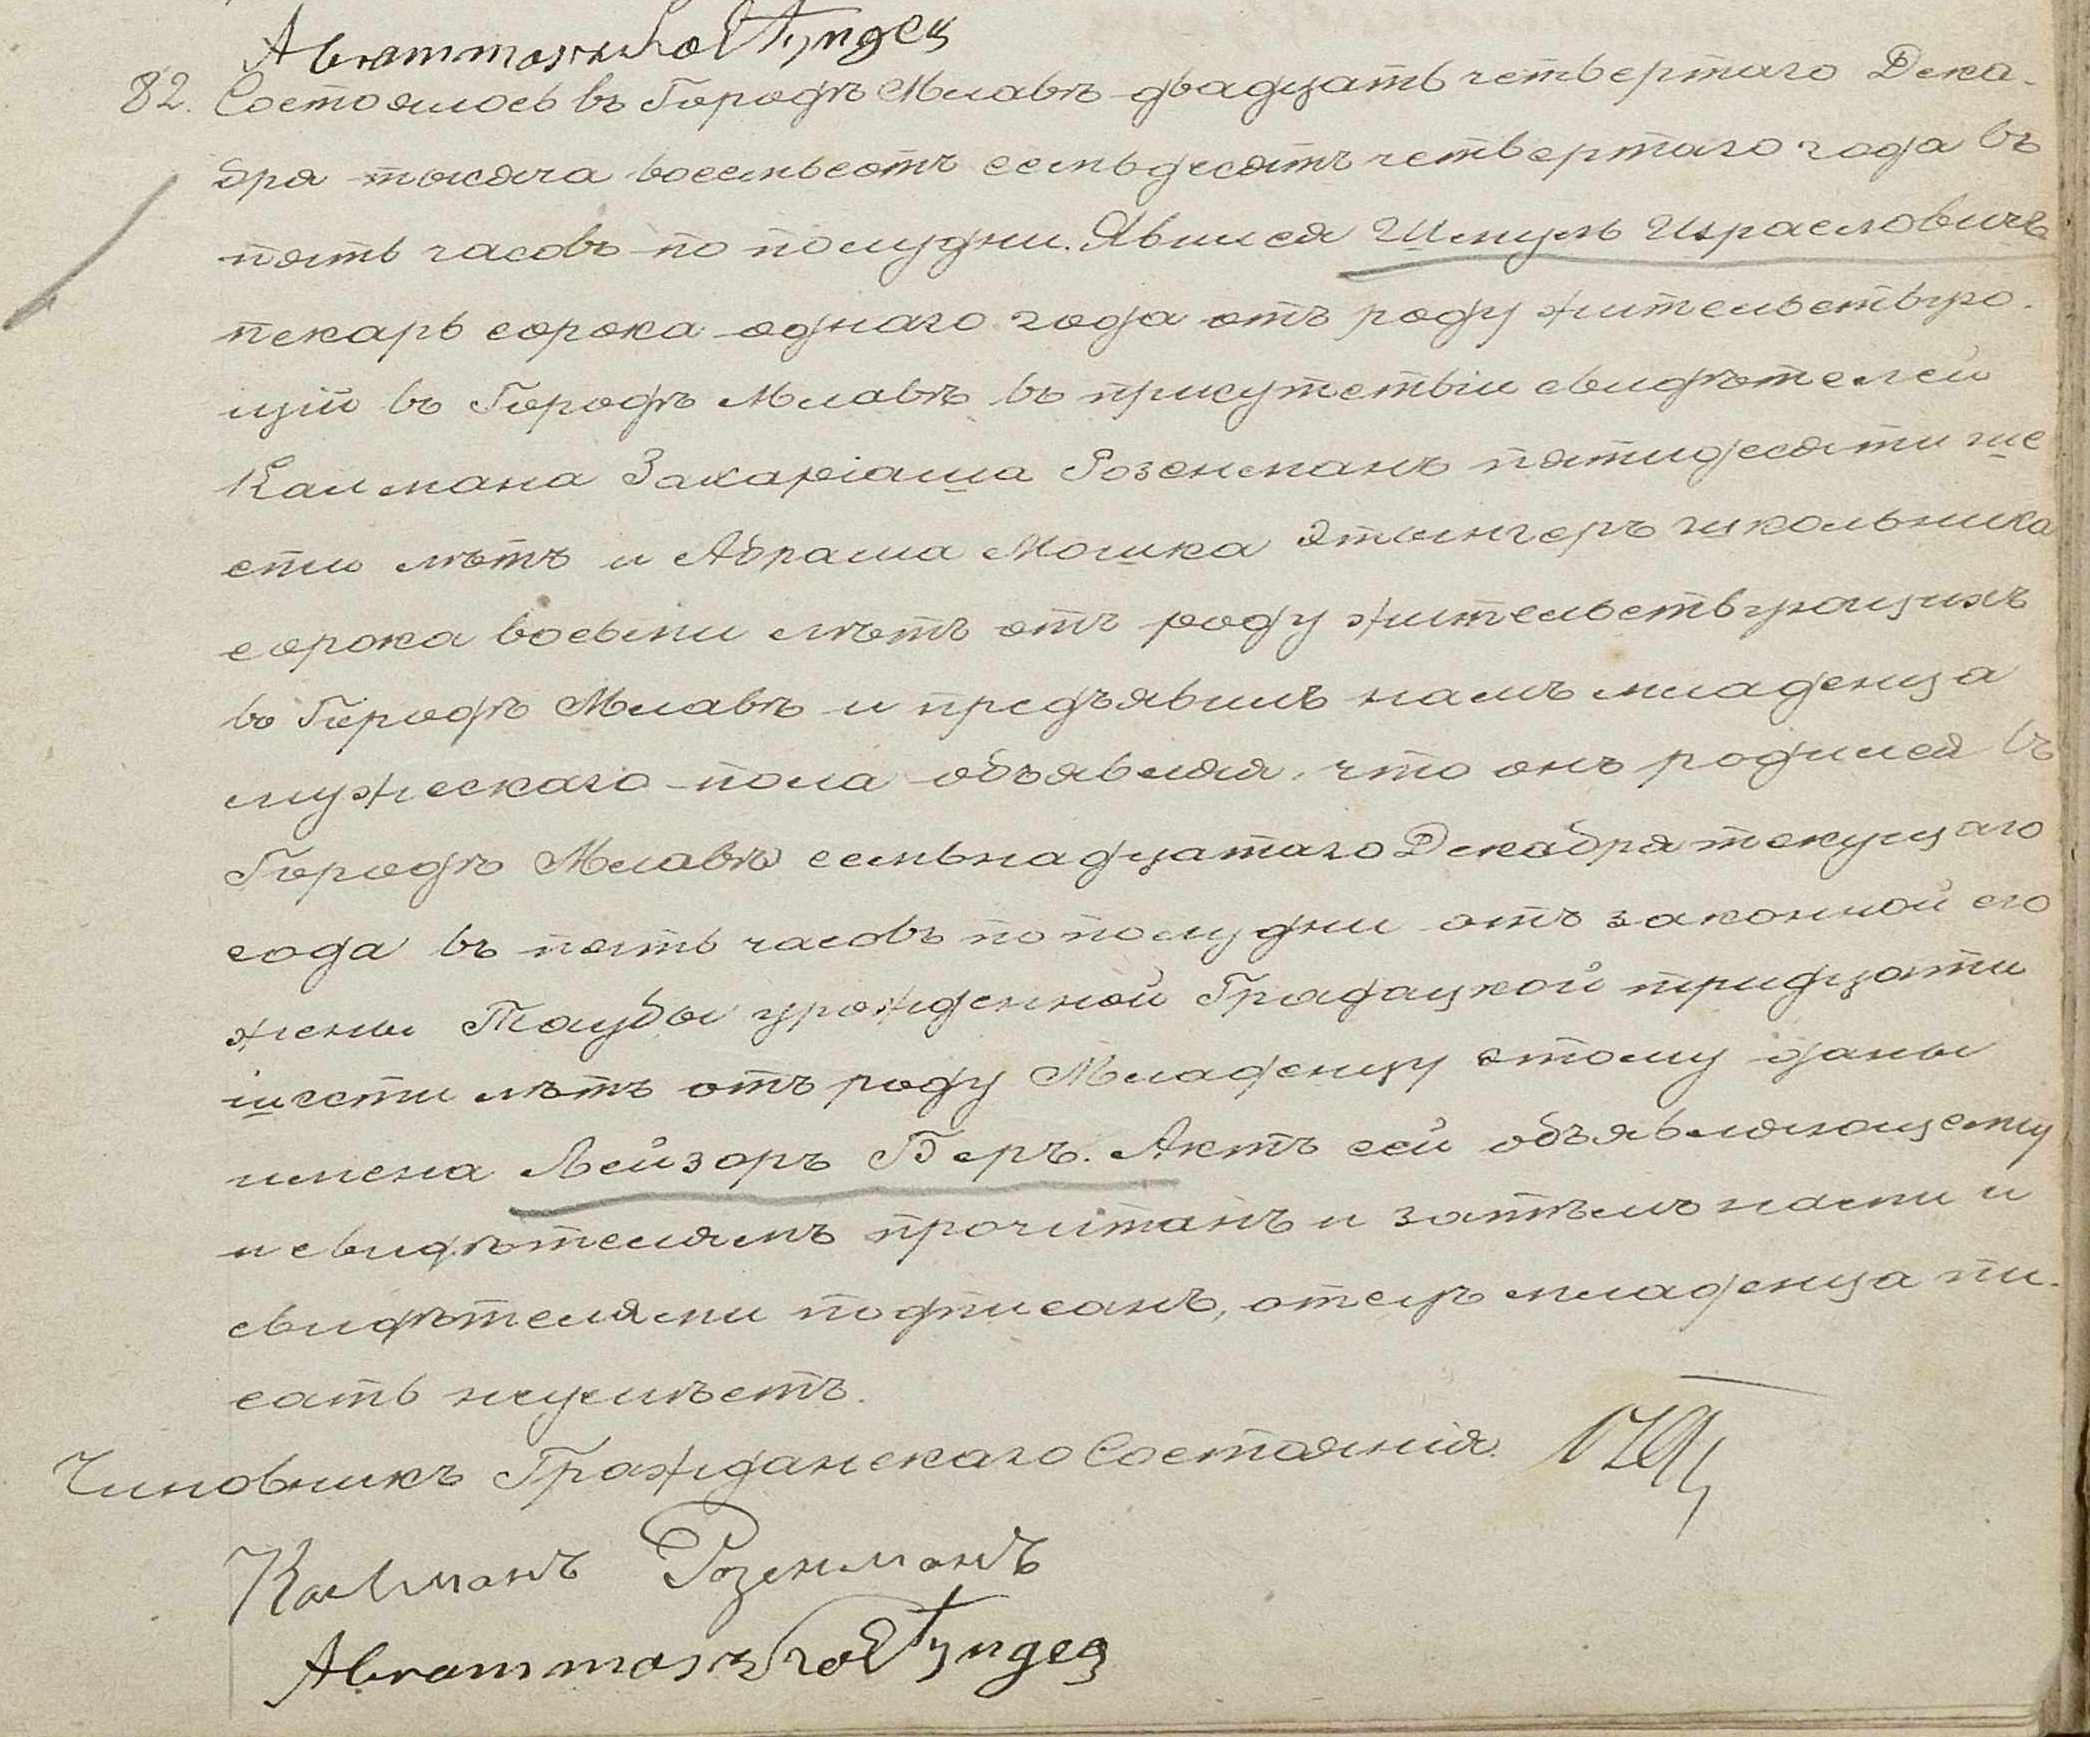 Abrammoszko Etynger
82. Состоялось въ Городѣ Млавѣ двадцать четвертаго Дека-
бря тысяча восемьсотъ семьдесятъ четвертаго года въ
пять часовъ по полудни. Явился Шмуль Израеловичъ
пекарь сорока однаго года отъ роду жительствую-
щій въ Городѣ Млавѣ въ присутствіи свидѣтелей
Калмана Захаріаша Розенманъ пятидесяти ше
сти лѣтъ и Абрама Мошка Этынгеръ школьника
сорока восьми лѣтъ отъ роду жительствующихъ
въ Городѣ Млавѣ и предъявилъ намъ младенца
мужескаго пола объявляя, что онъ родился въ
Городѣ Млавѣ семьнадцатаго Декабря текущаго
года въ пять часовъ по полудни отъ законной его
жены Таубы урожденной Градацкой тридцати
шести лѣтъ отъ роду Младенцу этому даны
имена Лейзоръ Беръ. Актъ сей объявляющему
и свидѣтелямъ прочитанъ и затѣмъ нами и
свидѣтелями подписанъ, отецъ младенца пи-
сать неумѣетъ.
Чиновникъ Гражданскаго Состоянія
Калманъ Розенманъ
Abrammoszko Etynger